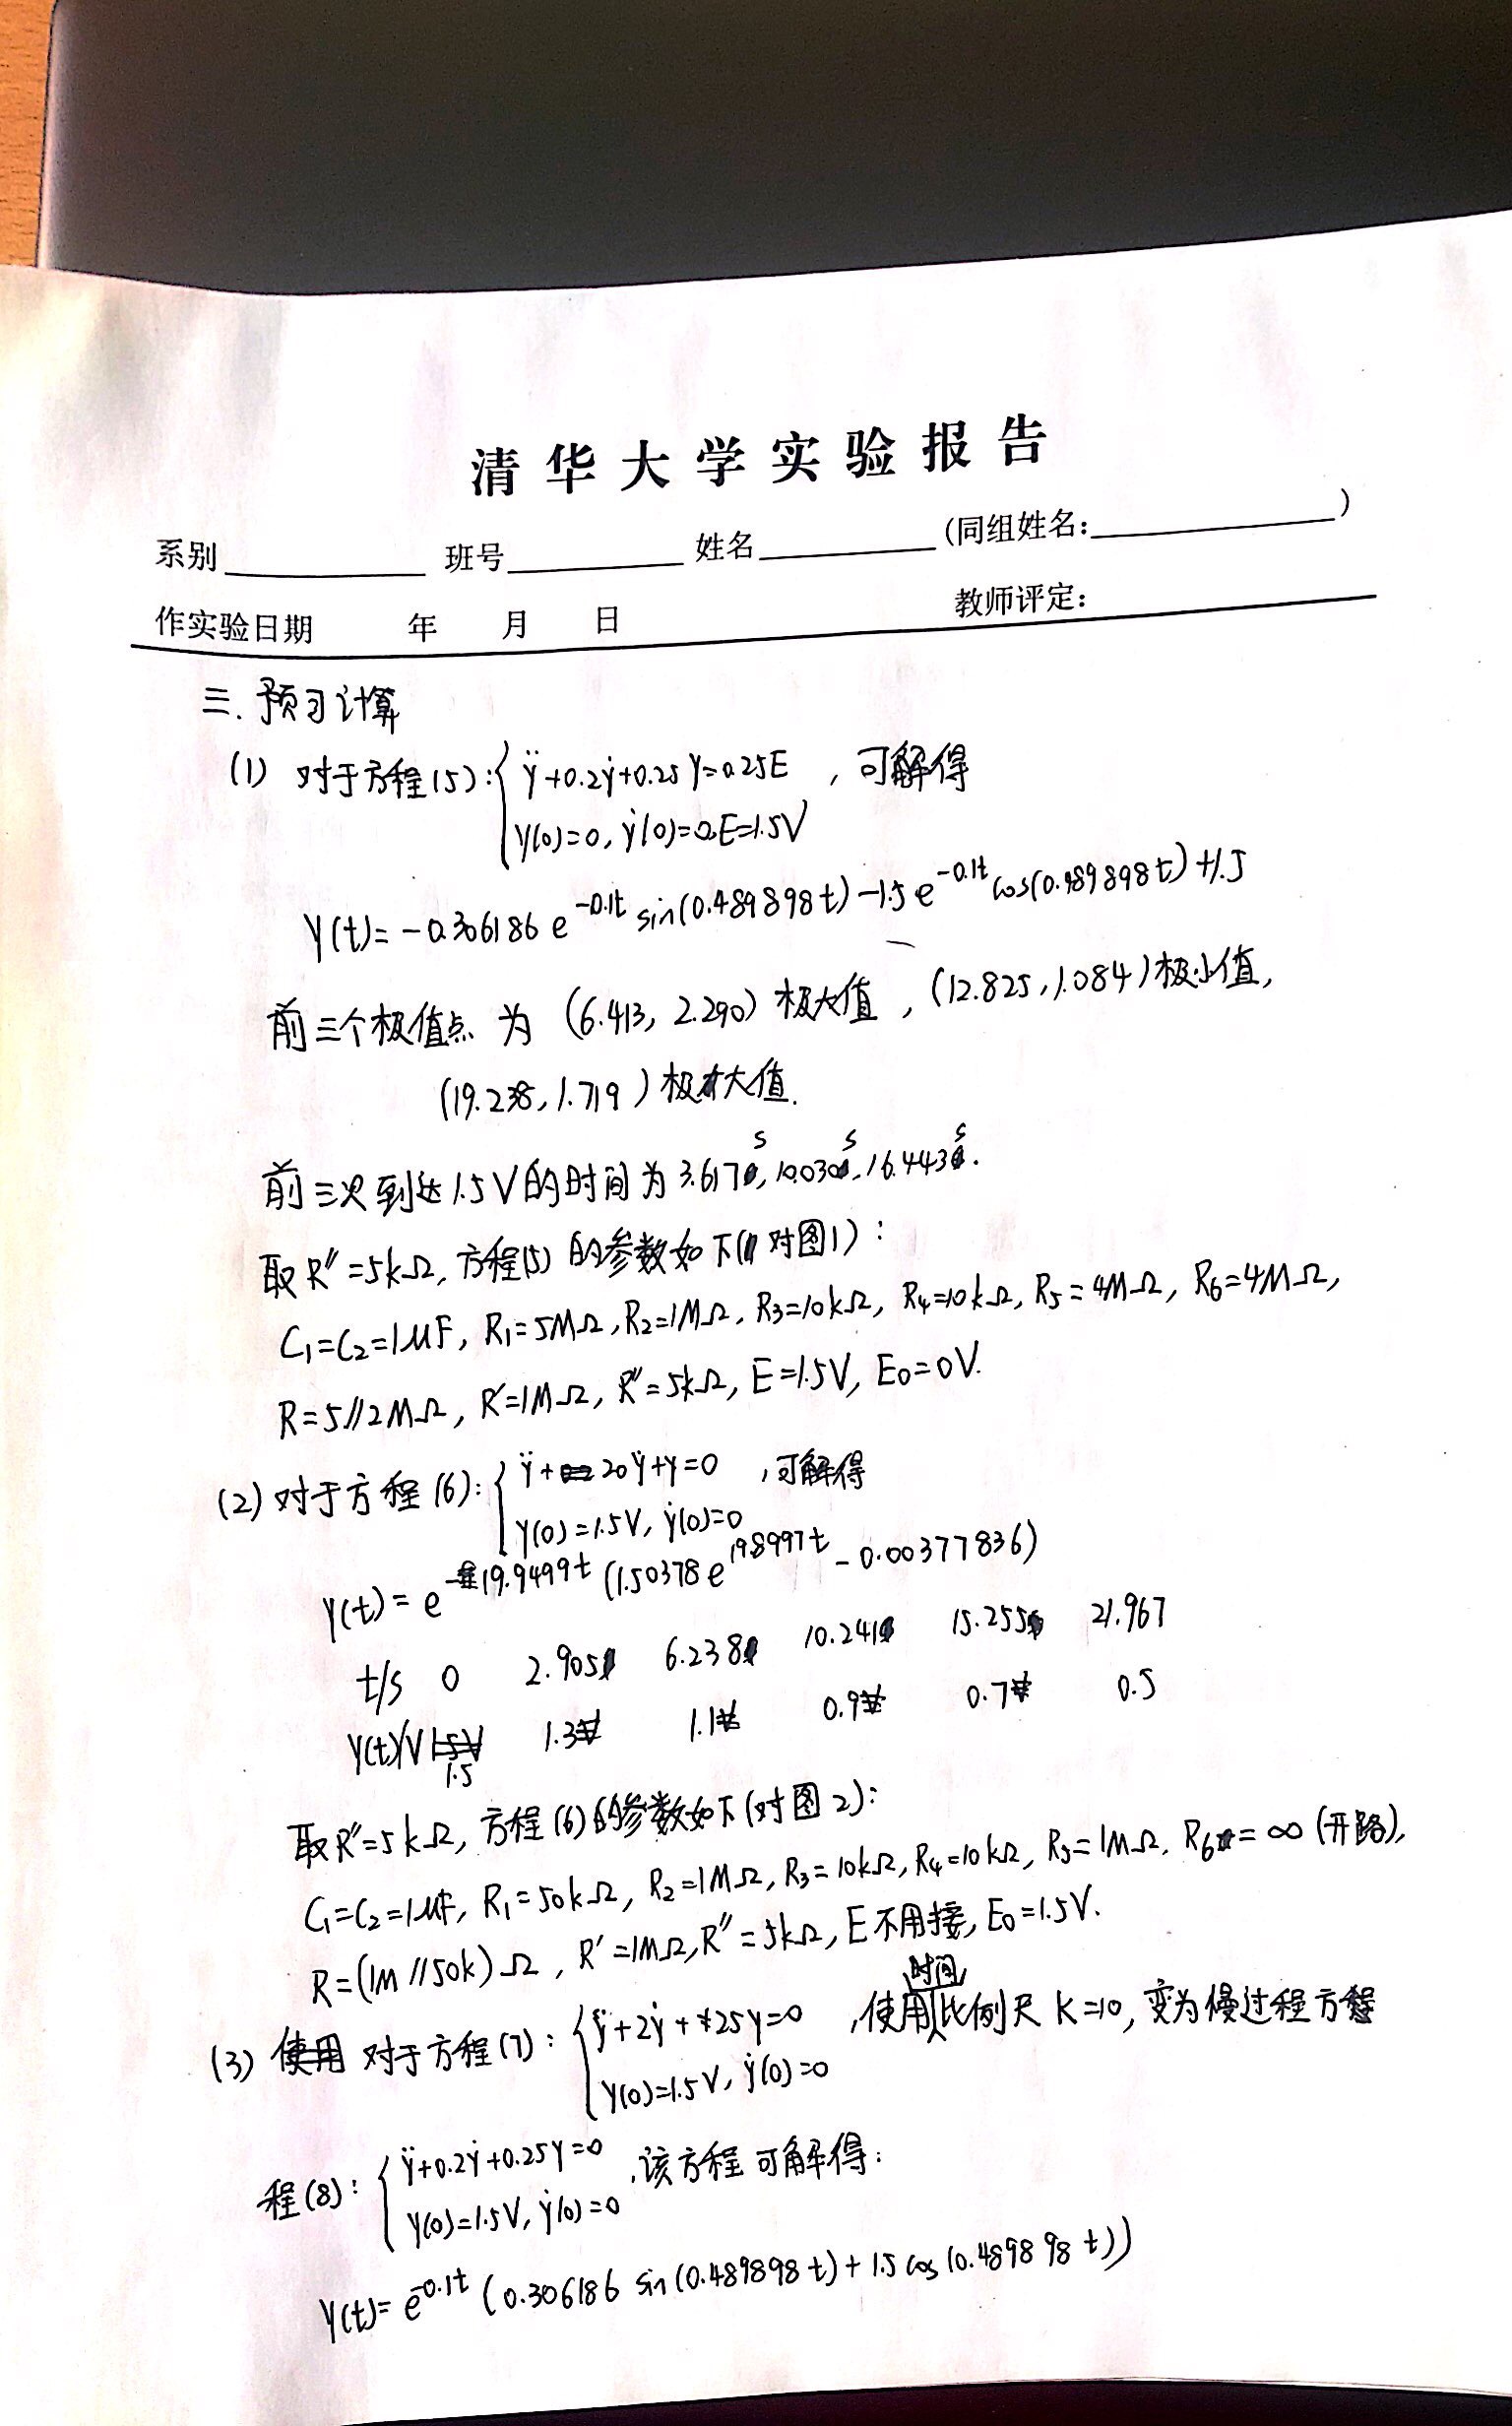 清华大学实验报告
系别 班号 姓名 (同组姓名: )
作实验日期 年 月 日 教师评定:
三. 预习计算
(1) 对于方程(5): { ÿ+0.2ẏ+0.25y=0.25E , 可解得
y(0)=0, ẏ(0)=0,E=1.5V
y(t)= -0.306186 e^{-0.1t} sin(0.489898t) -1.5 e^{-0.1t} cos(0.489898t) +1.5
前三个极值点 为 (6.413, 2.290) 极大值 , (12.825, 1.084) 极小值,
(19.238, 1.719) 极大值.
前三次到达1.5V的时间为 3.617s, 10.030s, 16.443s.
取R″=5kΩ, 方程(5)的参数如下(对图1):
C₁=C₂=1μF, R₁=5MΩ, R₂=1MΩ, R₃=10kΩ, R₄=10kΩ, R₅=4MΩ, R₆=4MΩ,
R=5//2MΩ, R′=1MΩ, R″=5kΩ, E=1.5V, E₀=0V.
(2) 对于方程(6): { ÿ+20ẏ+y=0 , 可解得
y(0)=1.5V, ẏ(0)=0
y(t)= e^{-19.9499t} (1.50378 e^{19.8997t} - 0.00377836)
t/s 0 2.905 6.238 10.241 15.255 21.967
y(t)/V 1.5 1.3 1.1 0.9 0.7 0.5
取R″=5kΩ, 方程(6)的参数如下(对图2):
C₁=C₂=1μF, R₁=50kΩ, R₂=1MΩ, R₃=10kΩ, R₄=10kΩ, R₅=1MΩ, R₆=∞(开路),
R=(1M//50k)Ω, R′=1MΩ, R″=5kΩ, E不用接, E₀=1.5V.
(3) 对于方程(7): { ÿ+2ẏ+25y=0 , 使用时间比例尺 K=10, 变为慢过程方程
y(0)=1.5V, ẏ(0)=0
程(8): { ÿ+0.2ẏ+0.25y=0 , 该方程可解得:
y(0)=1.5V, ẏ(0)=0
y(t)= e^{-0.1t} (0.306186 sin(0.489898t) + 1.5 cos(0.489898t))